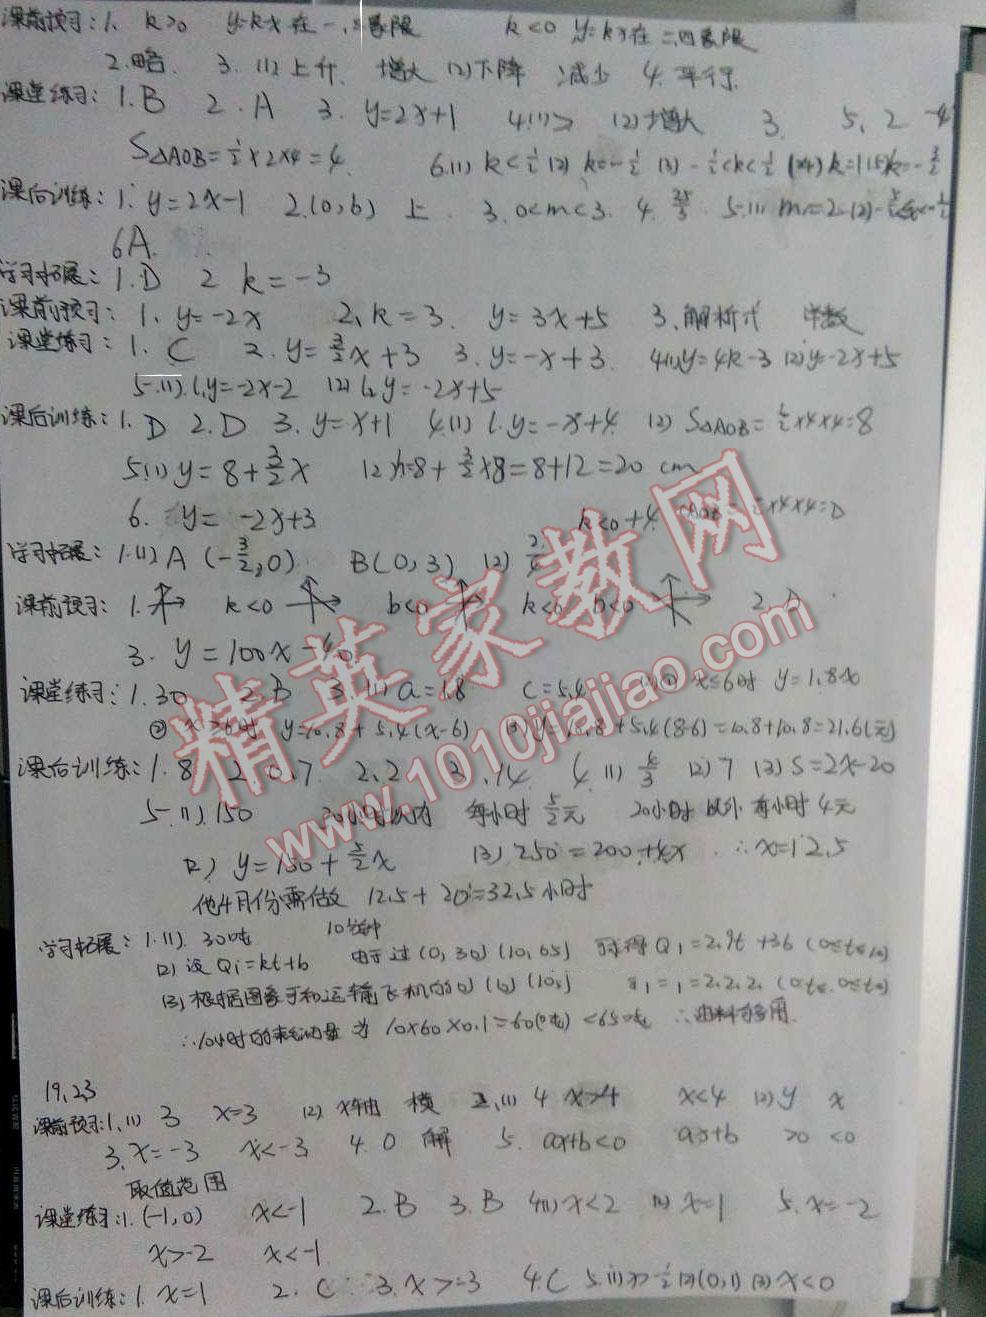 课前预习:1. k>0 y=kx在一、三象限 k<0 y=kx在二四象限
2.略. 3.(1)上升. 增大 (2)下降 减少 4.平行.
课堂练习:1.B 2.A 3. y=2x+1 4.(1)> (2)增大 3. 5. 2 -4
S△AOB=½×2×4=4. 6.(1) k<½ (2) k=-½ (3) -½<k<½ (4) k=1 (5)k=-3/2
课后训练:1. y=2x-1 2.(0,6) 上. 3. 0<m<3. 4. 25/3. 5.(1) m=2
6A.
学习拓展:1.D 2 k=-3
课前预习:1. y=-2x 2. k=3. y=3x+5 3.解析式
课堂练习:1. C 2. y=3/2x+3 3. y=-x+3. 4(1)y=4k-3 (2)y=-2x+5
5.(1).l₁y=-2x-2 (2) l₂y=-2x+5
课后训练:1.D 2.D 3. y=x+1 4.(1) l.y=-x+4. (2) S△AOB=½×4×4=8
5(1) y=8+3/2x (2) h=8+3/2×8=8+12=20 cm
6. y=-2x+3 k<0 +4.
学习拓展:1.(1) A (-3/2,0). B(0,3) (2)
课前预习:1. k<0 b<0 k<0 b<0 2.
3. y=100x-40
课堂练习:1.30 2 B 3.(1) a=1.8 C=5.4 x≤6时 y=1.8x
② x>6时 y=10.8+5.4(x-6) (3) y=10.8+5.4(8-6)=10.8+10.8=21.6(元)
课后训练:1.8 2.0.7 2.2 3.14 4.(1) (2)7 (3) S=2x-20
5.(1).150 30小时以内 每小时5/2元 20小时以外每小时4元
(2) y=150+5/2x (3) 250=200+4x ∴x=12.5
他4月份需做 12.5+20=32.5小时
学习拓展:1.(1). 30吨 10分钟
(2)设Q₁=kt+b 由于过(0,30)(10,65) 可得Q₁=2.9t+36
(3)根据图象可知运输飞机的
∴10小时的耗油量为 10×60×0.1=60(吨)<65吨 ∴油料够用.
19.23
课前预习:1.(1) 3 x=3 (2) x轴 横 2.(1) 4 x>4 x<4 (2) y x
3.x=-3 x<-3 4.0 解 5. ax+b<0 ax+b >0 <0
取值范围
课堂练习:1.(-1,0) x<-1 2.B 3.B 4(1)x<2 (2) x=1 5.x=-2
x>-2 x<-1
课后训练:1. x=1 2. C 3.x>-3 4.C 5.(1)x>-½ (2)(0,1) (3) x<0
精英家教网
www.1010jiajiao.com